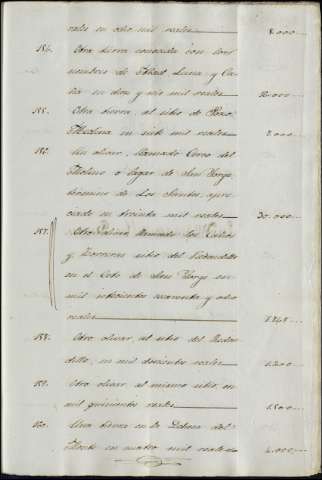 reales en ocho mil reales 8.000
154. Otra tierra conocida con los
nombres de Luna y
en doce mil reales 12.000
155. Otra tierra, al sitio de Pozo
Medina en siete mil reales 7.000
156. Un olivar, llamado Cerco del
Molino o lagar de San Jorge
término de Los Santos, apre-
ciado en treinta mil reales 30.000
157. Otro olivar llamado los
y sitio del
en el Coto de San Jorge en
mil ochocientos cuarenta y ocho
reales 1.848
158. Otro olivar, al sitio del Redon-
dillo, en mil doscientos reales 1.200
159. Otro olivar, al mismo sitio, en
mil quinientos reales 1.500
160. Una tierra en la Dehesa del
en cuatro mil reales 4.000